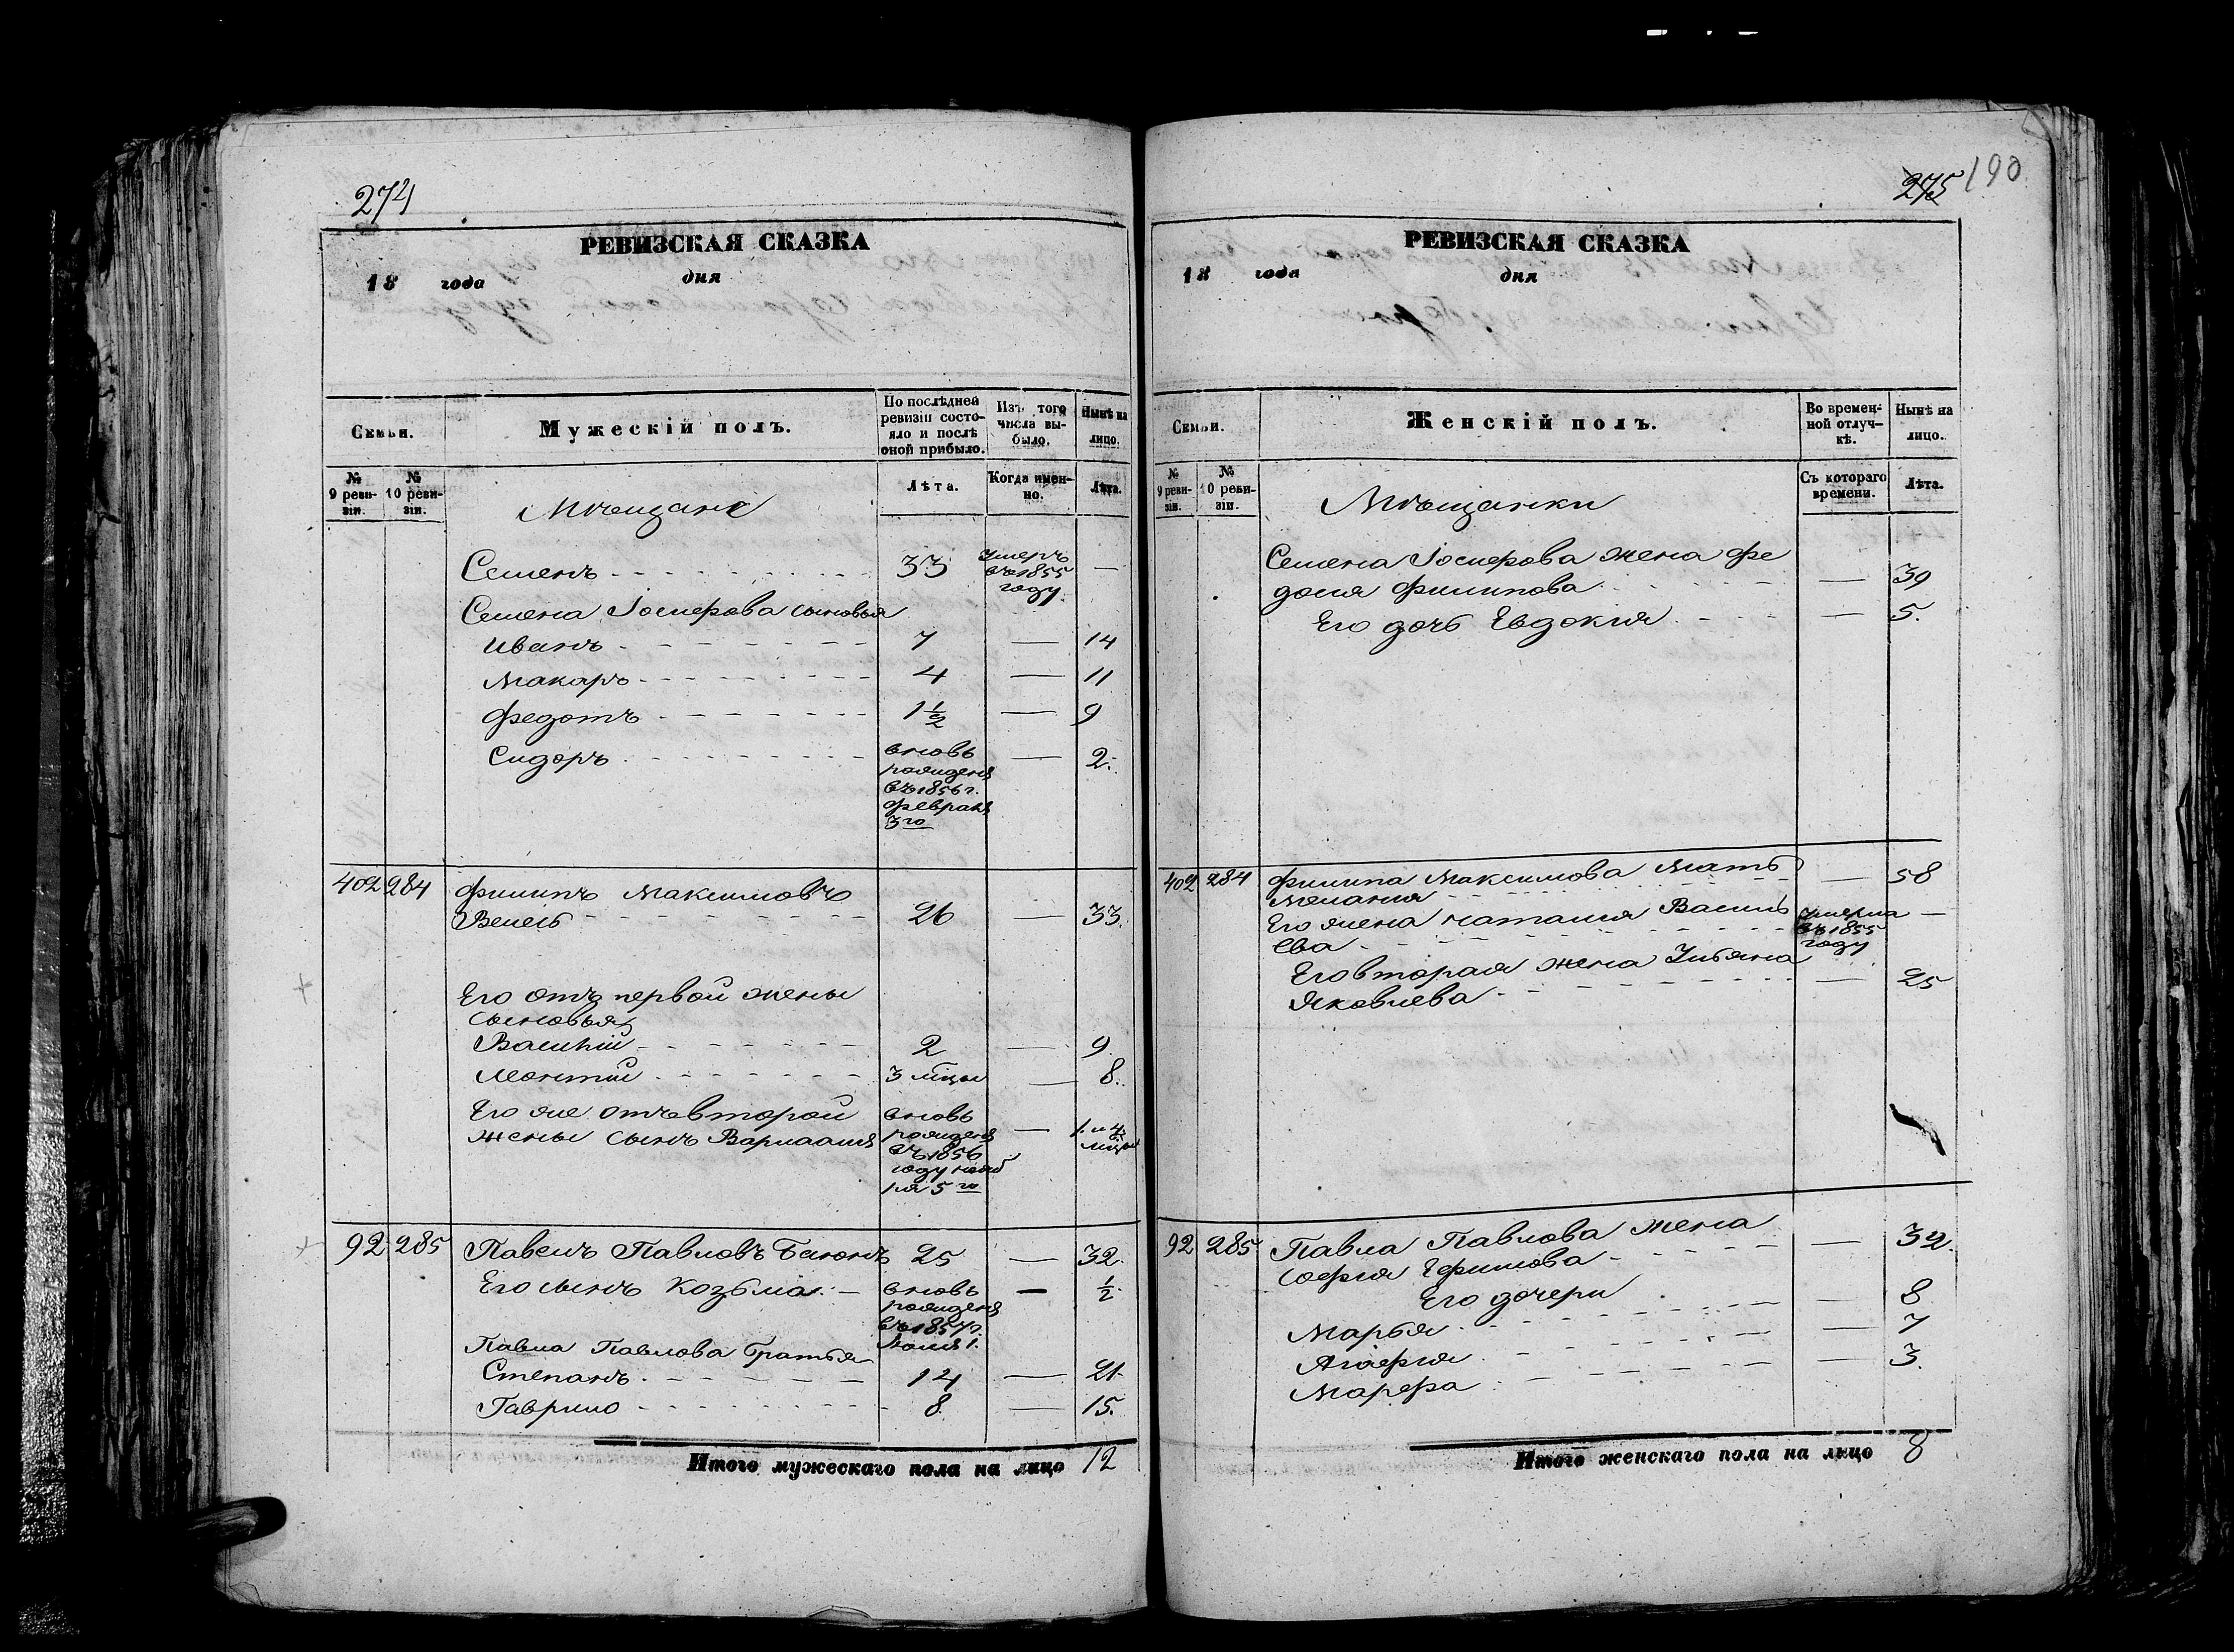 274
РЕВИЗСКАЯ СКАЗКА
18 года дня
Семьи.
Мужескій полъ.
По послѣдней ревизіи состояло и послѣ оной прибыло.
Изъ того числа выбыло.
Нынѣ на лицо.
№ 9 ревизіи.
№ 10 ревизіи.
Лѣта.
Когда именно.
Лѣта.
Мѣщане
Семенъ 33 умеръ въ 1855 году —
Семена Іосифова сыновья
Иванъ 7 — 14
Макаръ 4 — 11
Федотъ 1 1/2 — 9
Сидоръ вновь рожденъ въ 1856 г. февраля 3го — 2.
402 284 Филипъ Максимовъ
26 — 33.
Его отъ первой жены
сыновья
Василій 2 — 9
Леонтій 3 мѣцы — 8.
Его же отъ второй
жены сынъ Варлаамъ
вновь рожденъ въ 1856 году — 1. и мѣцы
92 285 Павелъ Павловъ 25 — 32.
Его сынъ Козьма вновь рожденъ въ 1857 г. — 1/2
Павла Павлова братья
Степанъ 14 — 21.
Гаврило 8 — 15.
Итого мужескаго пола на лицо 12
275 190
РЕВИЗСКАЯ СКАЗКА
18 года дня
Семьи.
Женскій полъ.
Во временной отлучкѣ.
Нынѣ на лицо.
№ 9 ревизіи.
№ 10 ревизіи.
Съ котораго времени.
Лѣта.
Мѣщанки
Семена Іосифова жена Фе
досия Филипова — 39
Его дочь Евдокия — 5.
402 284 Филипа Максимова мать — 58
Мелания
Его жена Наталия Василь умерла въ 1855 году —
ева
Его вторая жена Ульяна
Яковлева — 25
92 285 Павла Павлова жена
София Ефимова — 32.
Его дочери
Марья — 8
Агафия — 7
Марфа — 3.
Итого женскаго пола на лицо 8